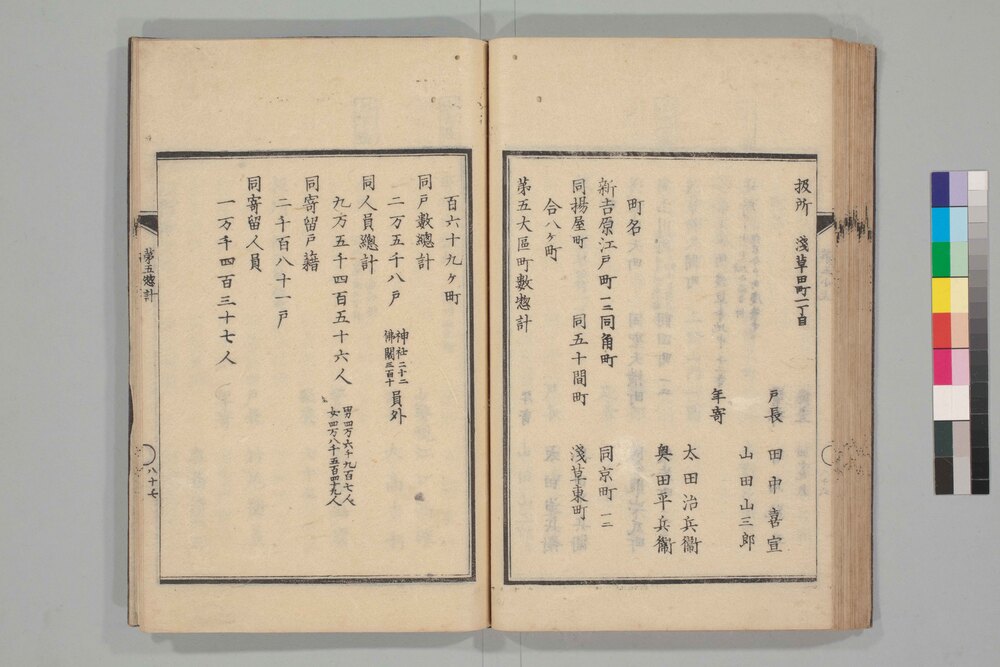 扱所　淺草田町一丁目
戸長　田中喜宣
山田山三郎
年寄
太田治兵衞
奥田平兵衞
町名
新吉原江戸町一二　同角町　同京町一二
同揚屋町　同五十間町　淺草東町
合八ヶ町
第五大區町數惣計
百六十九ヶ町
同戸數總計
二万五千八戸　神社二十二　佛閣三百十　員外
同人員總計
九万五千四百五十六人　男四万六千九百七人　女四万八千五百四十九人
同寄留戸籍
二千百八十一戸
同寄留人員
一万千四百三十七人
第五惣計
八十七